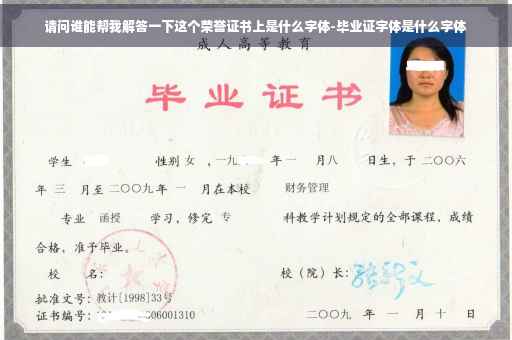 请问谁能帮我解答一下这个荣誉证书上是什么字体-毕业证字体是什么字体
成人高等教育
毕业证书
学生 性别 女 ，一九 年 一 月八 日生，于 二〇〇六
年 三 月至 二〇〇九 年 一 月在本校 财务管理
专业 函授 学习，修完 专 科教学计划规定的全部课程，成绩
合格，准予毕业。
校 名： 校（院）长：
批准文号：教计[1998]33号
证书编号： 06001310 二〇〇九 年 一 月 十 日